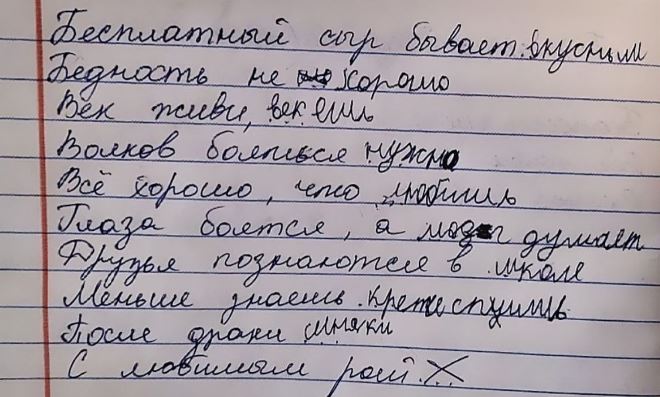 Бесплатный сыр бывает вкусным
Бедность не хорошо
Век живи, век ешь
Волков бояться нужно
Всё хорошо, что любишь
Глаза боятся, а мозг думает
Друзья познаются в школе
Меньше знаешь крепче спишь
После драки синяки
С любимым рай X